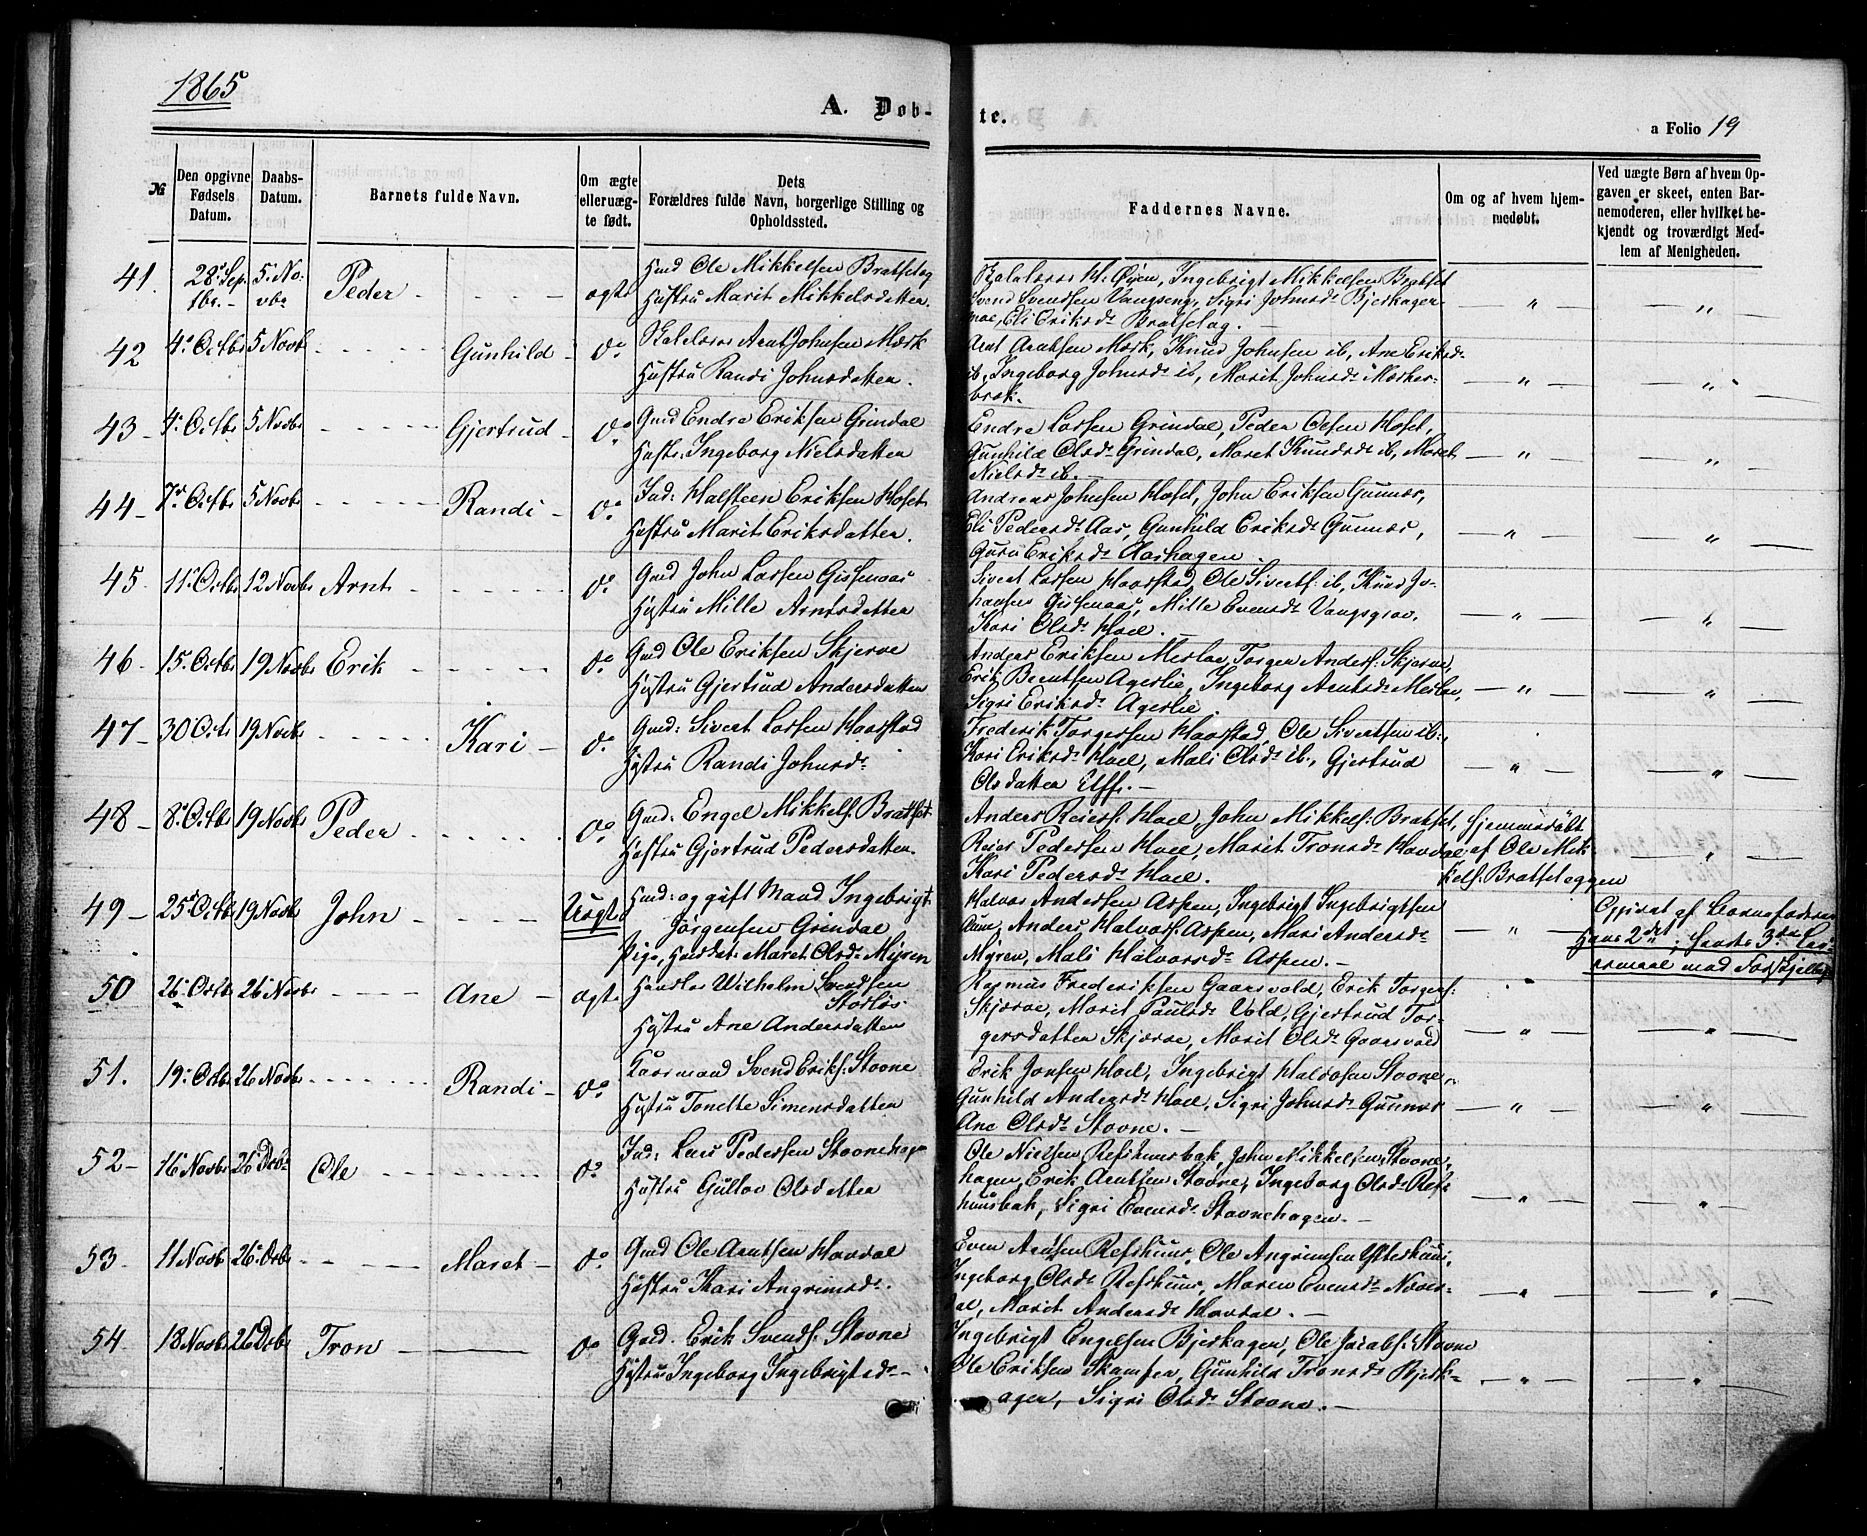 1865
A. Døb-
te.
a Folio 19
№
Den opgivne Fødsels Datum.
Daabs-Datum.
Barnets fulde Navn.
Om ægte eller uæg-te født.
Dets Forældres fulde Navn, borgerlige Stilling og Opholdssted.
Faddernes Navne.
Om og af hvem hjem-medøbt.
Ved uægte Børn af hvem Op-gaven er skeet, enten Bar-nemoderen, eller hvilket be-kjendt og troværdigt Med-lem af Menigheden.
41. 28. Sep- 5. No- Peder ogte Ole Mikkelsen Bratselag
tbr. vbr Hustru Marit Mikkelsdatter.
Øyen, Ingebrigt Mikkelsen Bratset
Svend Svendsen Vangseng, Sigri Johnsdr Bjerkager-
moe, Eli Eriksdr Bratselag.
42 4. Octbr 5 Novbr Gunhild do Arnt Johnsen Mærk
Hustru Randi Johnsdatter.
Arnt Arntsen Mærk, Knud Johnsen ib, Ane Eriksdr
ib, Ingeborg Johnsdr ib, Marit Johnsdr Mærker-
bræk.
43 4. Octbr 5 Novbr Gjertrud do Gmd Endre Eriksen Grindal
Hustr. Ingeborg Nielsdatter
Endre Larsen Grindal, Peder Olsen Hosel,
Gunhild Olsdr Grindal, Maret Knudsdr ib, Maret
Nielsdr ib.
44 7. Octbr 5 Novbr Randi do Ind: Halsteen Eriksen Hoset
Hustru Marit Eriksdatter.
Andreas Johnsen Hosel, John Eriksen Gunnes,
Eli Pedersdr Aas, Gunhild Eriksdr Gunnes,
Guru Eriksdr Aashagen.
45. 11. Octbr 12 Novbr Arnt do Gmd John Larsen Gisnaas
Hustru Mille Arntsdatter
Sivert Larsen Haarstad, Ole Siverts: ib, Knud Jo-
hansen Gisnaas, Mille Evensdr Vangsgrav,
Kari Olsdr Hoel.
46 15. Octbr 19 Novbr Erik do Gmd Ole Eriksen Skjerve
Hustru Gjertrud Andersdatter
Anders Eriksen Mesloe, Torger Anders: Skjerve,
Erik Berntsen Agerlie, Ingeborg Arntsdr Mesloe,
Sigri Eriksdr Agerlie.
47 30 Oct. 19 Novbr Kari do Gmd: Sivert Larsen Haarstad
Hustru Randi Johnsdr
Frederik Torgersen Haarstad, Ole Sivertsen ib.,
Kari Eriksdr Hoel, Mali Olsdr ib., Gjertrud
Olsdatter
48 8. Octbr 19 Novbr Peder do Gmd: Engel Mikkels: Bratset
Hustru Gjertrud Pedersdatter.
Anders Reiers: Hoel, John Mikkels: Bratset,
Reier Pedersen Hoel, Marit Tronsdr Havdal
Kari Pedersdr Hoel.
Hjemmedøbt
af Ole Mik-
kels: Bratseleggen
49 25. Octbr 19 Novbr John Uægte Hmd: og gift Mand Ingebrigt
Jørgensen Grindal
Pige, Maret Olsdr Myren
Halvor Andersen Aspen, Ingebrigt Ingebrigtsen
Aune, Anders Halvors: Aspen, Mari Andersdr
Myren, Mali Halvorsdr Aspen.
Opgivet af Barnefaderen
Hans 2det, hendes 3die Lei-
ermaal med Forskjellige
50 26. Octbr 26 Novbr Ane ogte Wilhelm Svendsen
Storlis
Hustru Ane Andersdatter
Rasmus Frederiksen Gaarsvold, Erik Torgers:
Skjerve, Marit Paulsdr Vold, Gjertrud Tor-
gersdatter Skjerve, Marit Olsdr Gaarsvold
51. 19. Octbr 26 Novbr Randi do Kaarmand Svend Eriks: Stavne
Hustru Tonette Simensdatter
Erik Jonsen Hoel, Ingebrigt Halvorsen Stavne,
Gunhild Andersdr Hoel, Sigri Johnsdr Gunnes
Ane Olsdr Stavne.
52 16 Novbr 26 Decbr Ole do Ind: Lars Pedersen Stavnehage
Hustru Gullov Olsdatter
Ole Nielsen Refshusbak, John Mikkelsen Stavne-
hagen, Erik Arntsen Stavne, Ingeborg Olsdr Refs
husbak, Sigri Evensdr Stavnehagen.
53. 11 Novbr 26. Decbr Maret do Gmd Ole Arntsen Havdal
Hustru Kari Angrimsdr.
Even Arntsen Refshuus, Ole Angrimsen Ytterhuus,
Ingeborg Olsdr Refshuus, Maren Evensdr
Marit Andersdr Havdal.
54. 18 Novbr 26 Decbr Tron do Gmd. Erik Svends: Stavne
Hustru Ingeborg Ingebrigtsdr
Ingebrigt Engelsen Bjerkagen, Ole Jacobs: Stavne
Ole Eriksen Skamfer, Gunhild Tronsdr Bjerk-
ager, Sigri Olsdr Stavne.